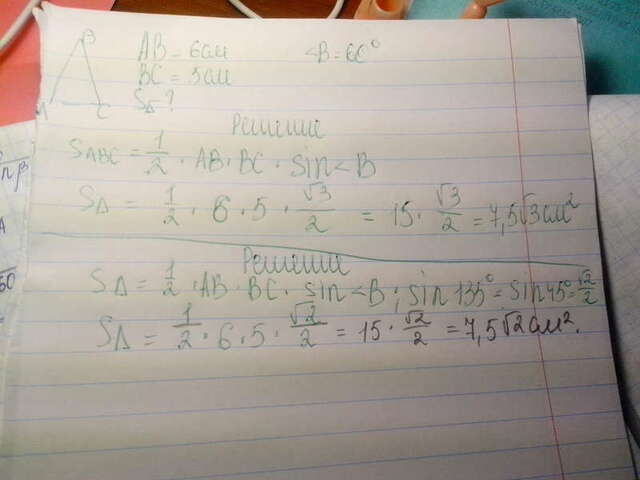 B AB = 6см <B = 60°
BC = 5см
A C S△ ?
Решение
S ABC = 1/2 · AB · BC · sin < B
S△ = 1/2 · 6 · 5 · √3/2 = 15 · √3/2 = 7,5√3 см²
Решение
S△ = 1/2 · AB · BC · sin < B ; sin 135° = sin 45° = √2/2
S△ = 1/2 · 6 · 5 · √2/2 = 15 · √2/2 = 7,5√2 см².